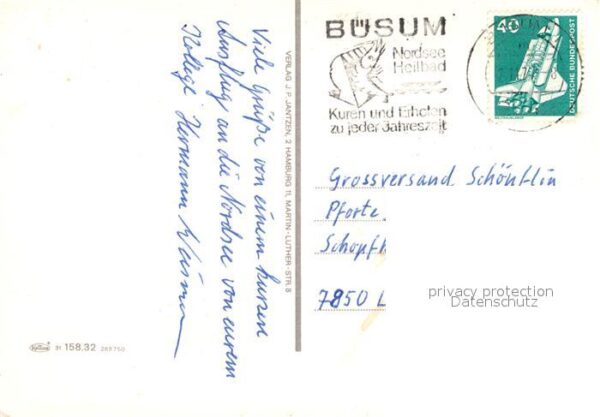 BÜSUM
Nordsee
Heilbad
Kuren und Erholen
zu jeder Jahreszeit
40
DEUTSCHE BUNDESPOST
Viele Grüße von einem kurzen
Ausflug an die Nordsee von eurem
Kollege Hermann
VERLAG J. P. JANTZEN, 2 HAMBURG 11, MARTIN-LUTHER-STR. 8
Grossversand Schöntlin
Pforte
Schopfh
7850 L
privacy protection
Datenschutz
31 158.32 285750